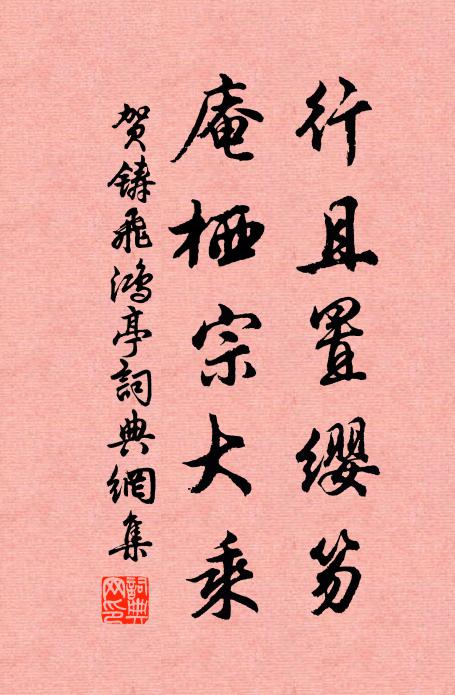 行且置缨笏
庵栖宗大乘
贺铸飛鴻亭詞典網集
詞典網印